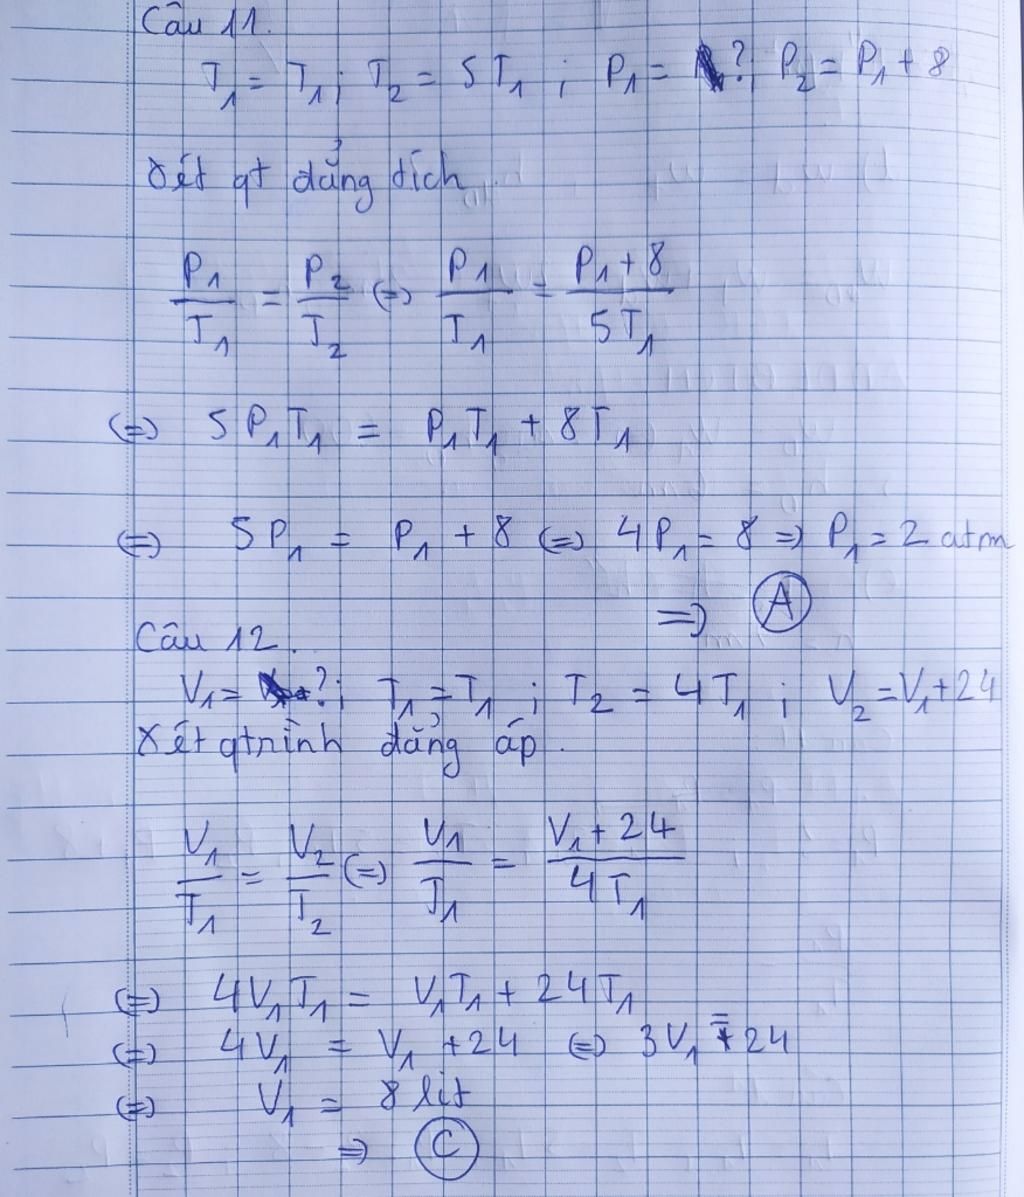 Câu 11.
T₁ = T₁ ; T₂ = 5T₁ ; P₁ = ? ; P₂ = P₁ + 8
Xét qt đẳng tích
P₁/T₁ = P₂/T₂ (=) P₁/T₁ = (P₁ + 8)/(5T₁)
(=) 5P₁T₁ = P₁T₁ + 8T₁
(=) 5P₁ = P₁ + 8 (=) 4P₁ = 8 => P₁ = 2 atm
=> A
Câu 12.
V₁ = ? ; T₁ = T₁ ; T₂ = 4T₁ ; V₂ = V₁ + 24
Xét qtrình đẳng áp.
V₁/T₁ = V₂/T₂ (=) V₁/T₁ = (V₁ + 24)/(4T₁)
(=) 4V₁T₁ = V₁T₁ + 24T₁
(=) 4V₁ = V₁ + 24 (=) 3V₁ = 24
(=) V₁ = 8 lít
=> C